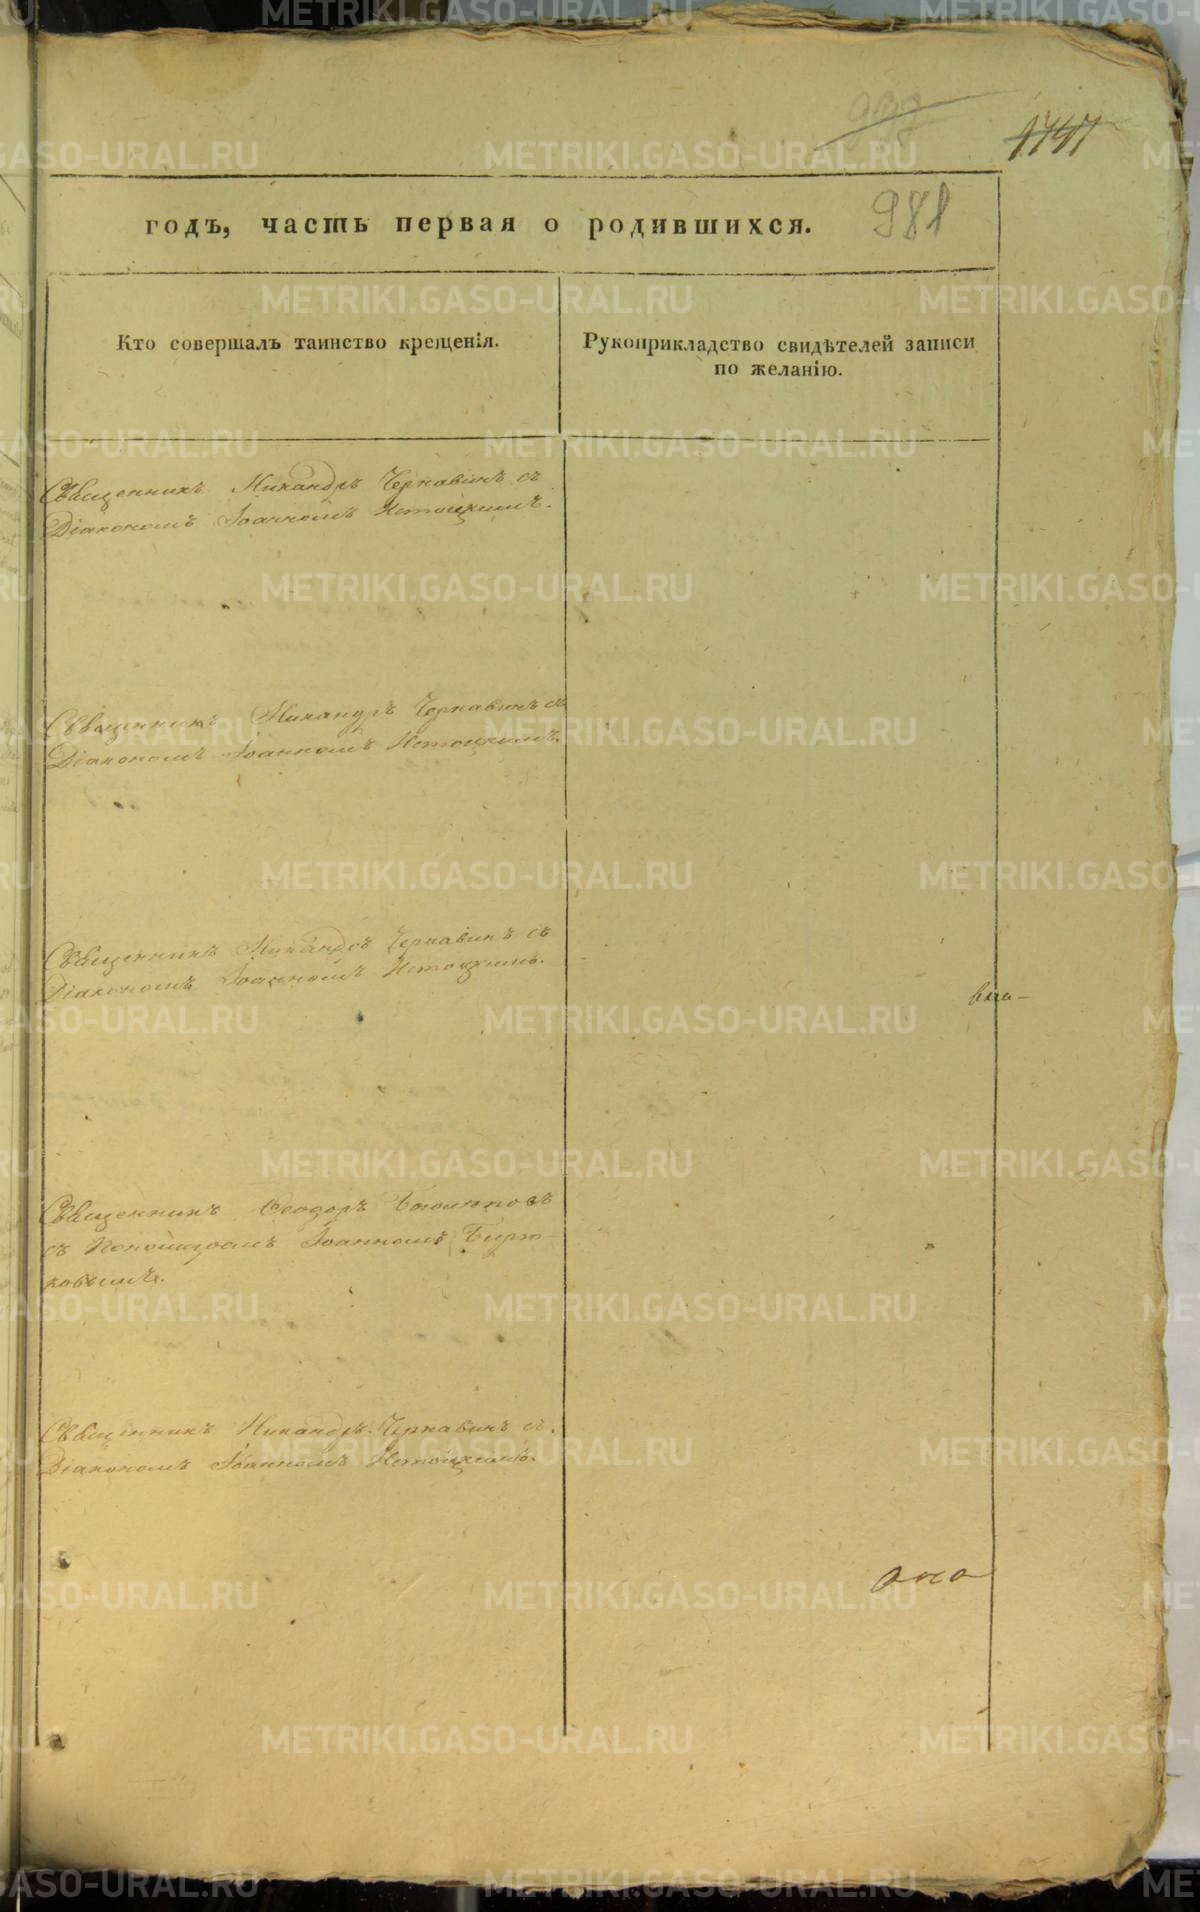 1747
981
годъ, часть первая о родившихся.
Кто совершалъ таинство крещенія.
Рукоприкладство свидѣтелей записи
по желанію.
Священникъ Никандръ Чернавинъ съ
Діакономъ Іоанномъ Истоцкимъ.
Священникъ Никандръ Чернавинъ съ
Діакономъ Іоанномъ Истоцкимъ.
Священникъ Никандръ Чернавинъ съ
Діакономъ Іоанномъ Истоцкимъ.
Священникъ Феодоръ
съ Пономаремъ Іоанномъ Бирю-
ковымъ.
Священникъ Никандръ Чернавинъ съ
Діакономъ Іоанномъ Истоцкимъ.
METRIKI.GASO-URAL.RU